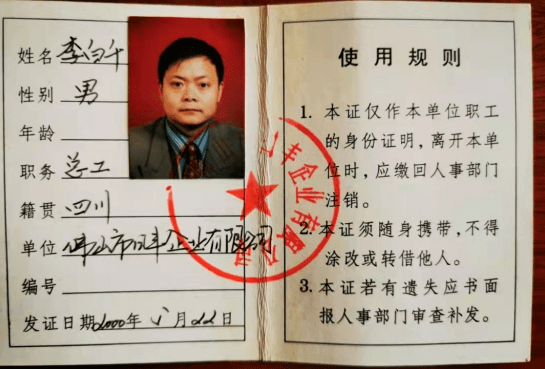 姓名 李白千
性别 男
年龄
职务 总工
籍贯 四川
单位 佛山市 企业有限公司
编号
发证日期 2000年 月22日
使用规则
1. 本证仅作本单位职工
的身份证明，离开本单
位时，应缴回人事部门
注销。
2. 本证须随身携带，不得
涂改或转借他人。
3. 本证若有遗失应书面
报人事部门审查补发。
丰企业有限公司